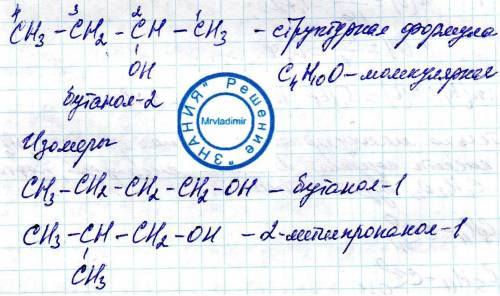 4 3 2 1
CH3 – CH2 – CH – CH3 – структурная формула
OH C4H10O – молекулярная
бутанол-2
"ЗНАНИЯ" Решение
Mrvladimir
Изомеры
CH3 – CH2 – CH2 – CH2 – OH – бутанол-1
CH3 – CH – CH2 – OH – 2-метилпропанол-1
CH3